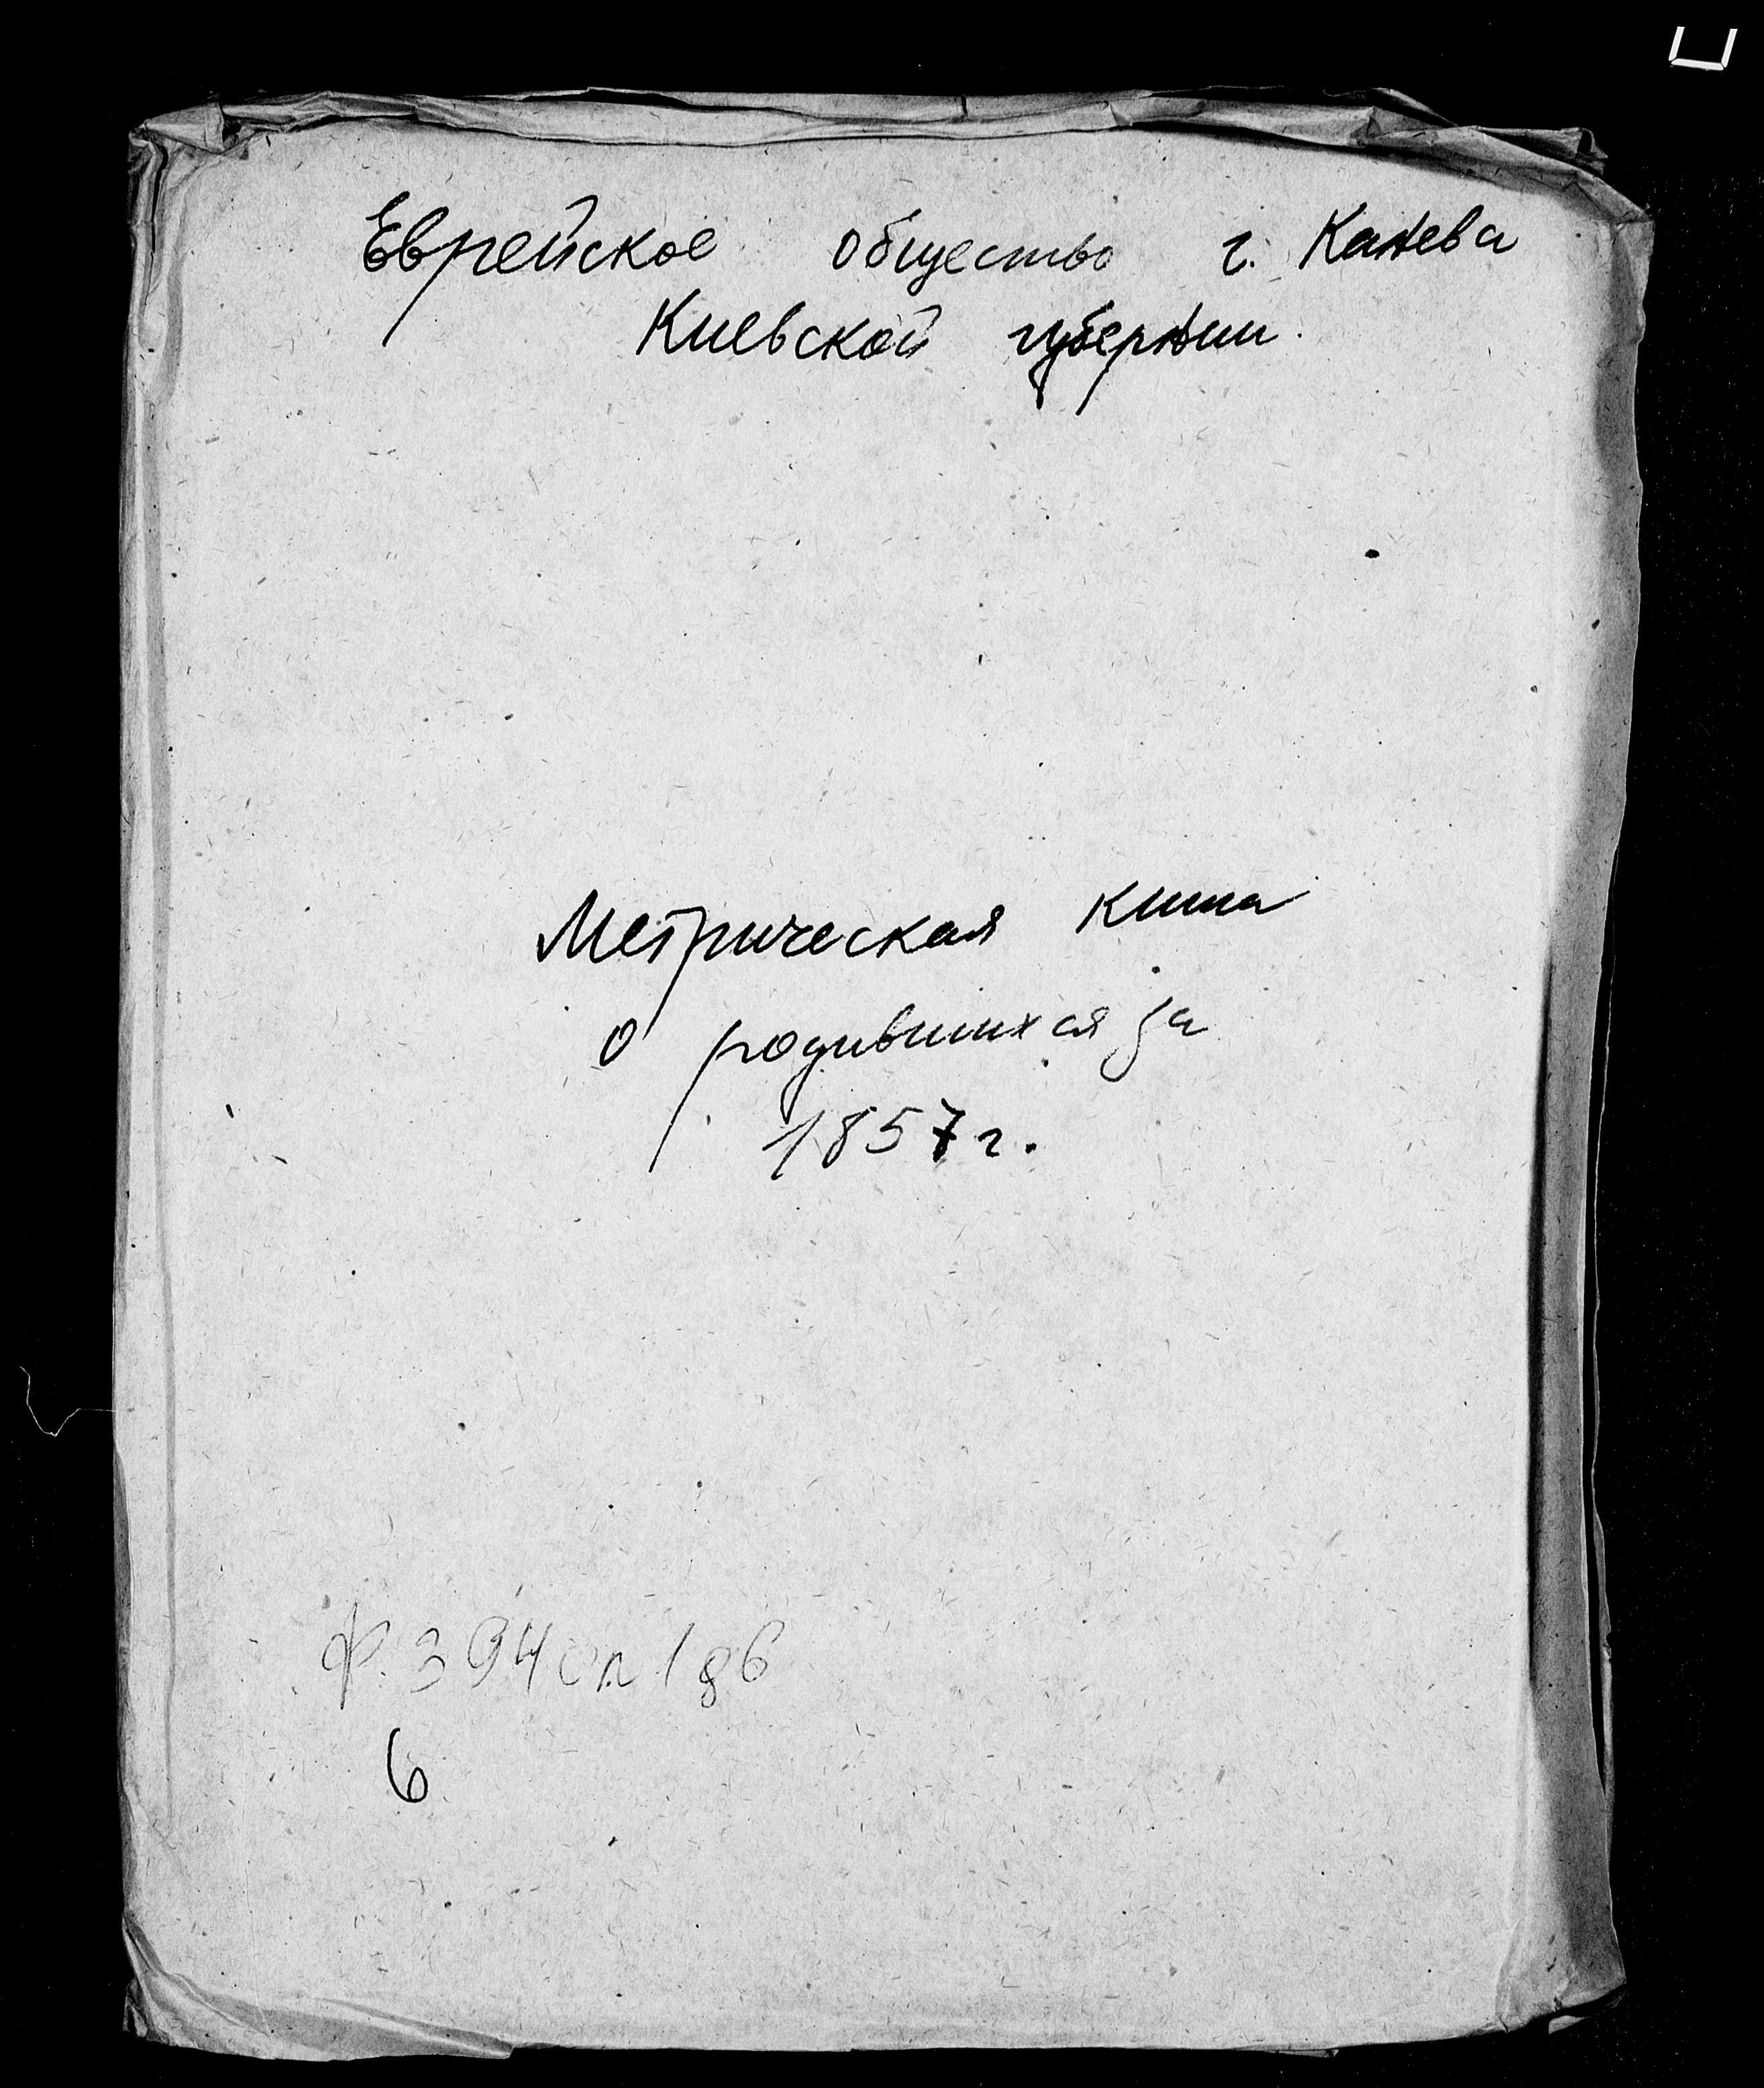 Еврейское общество г. Канева
Киевской губернии.
Метрическая книга
о родившихся за
1857 г.
Ф. 394 оп 1 д 6
6